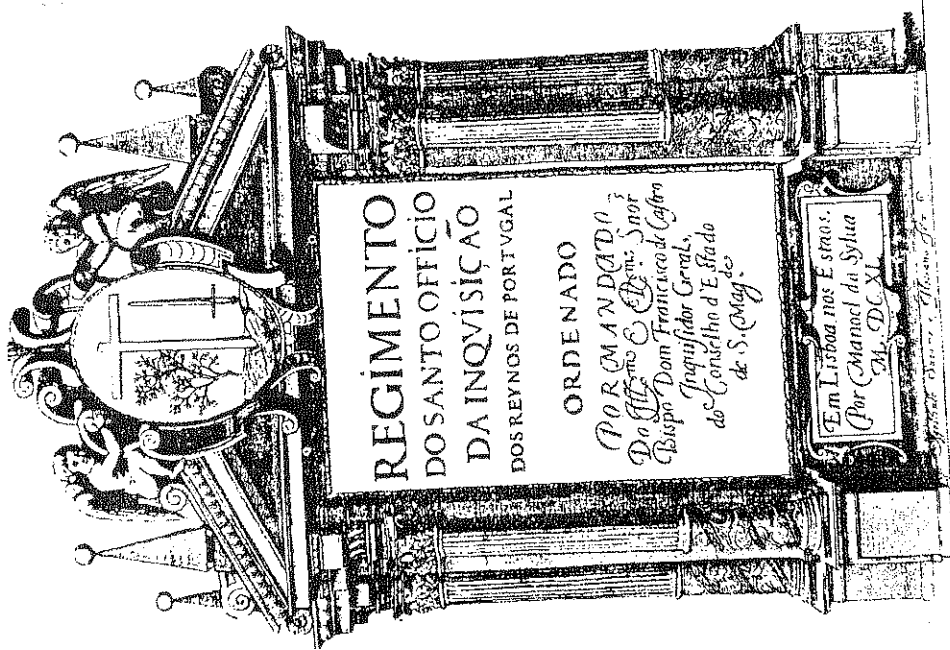 REGIMENTO
DO SANTO OFFICIO
DA INQVISIÇÃO
DOS REYNOS DE PORTVGAL
ORDENADO
POR MANDADO
Do Illmo e Rmo Snor
Bispo Dom Francisco de Castro
Inquisidor Geral,
do Conselho d'Estado
de S. Magde
Em Lisboa nos Estaos.
Por Manoel da Sylua
M. DC. XL